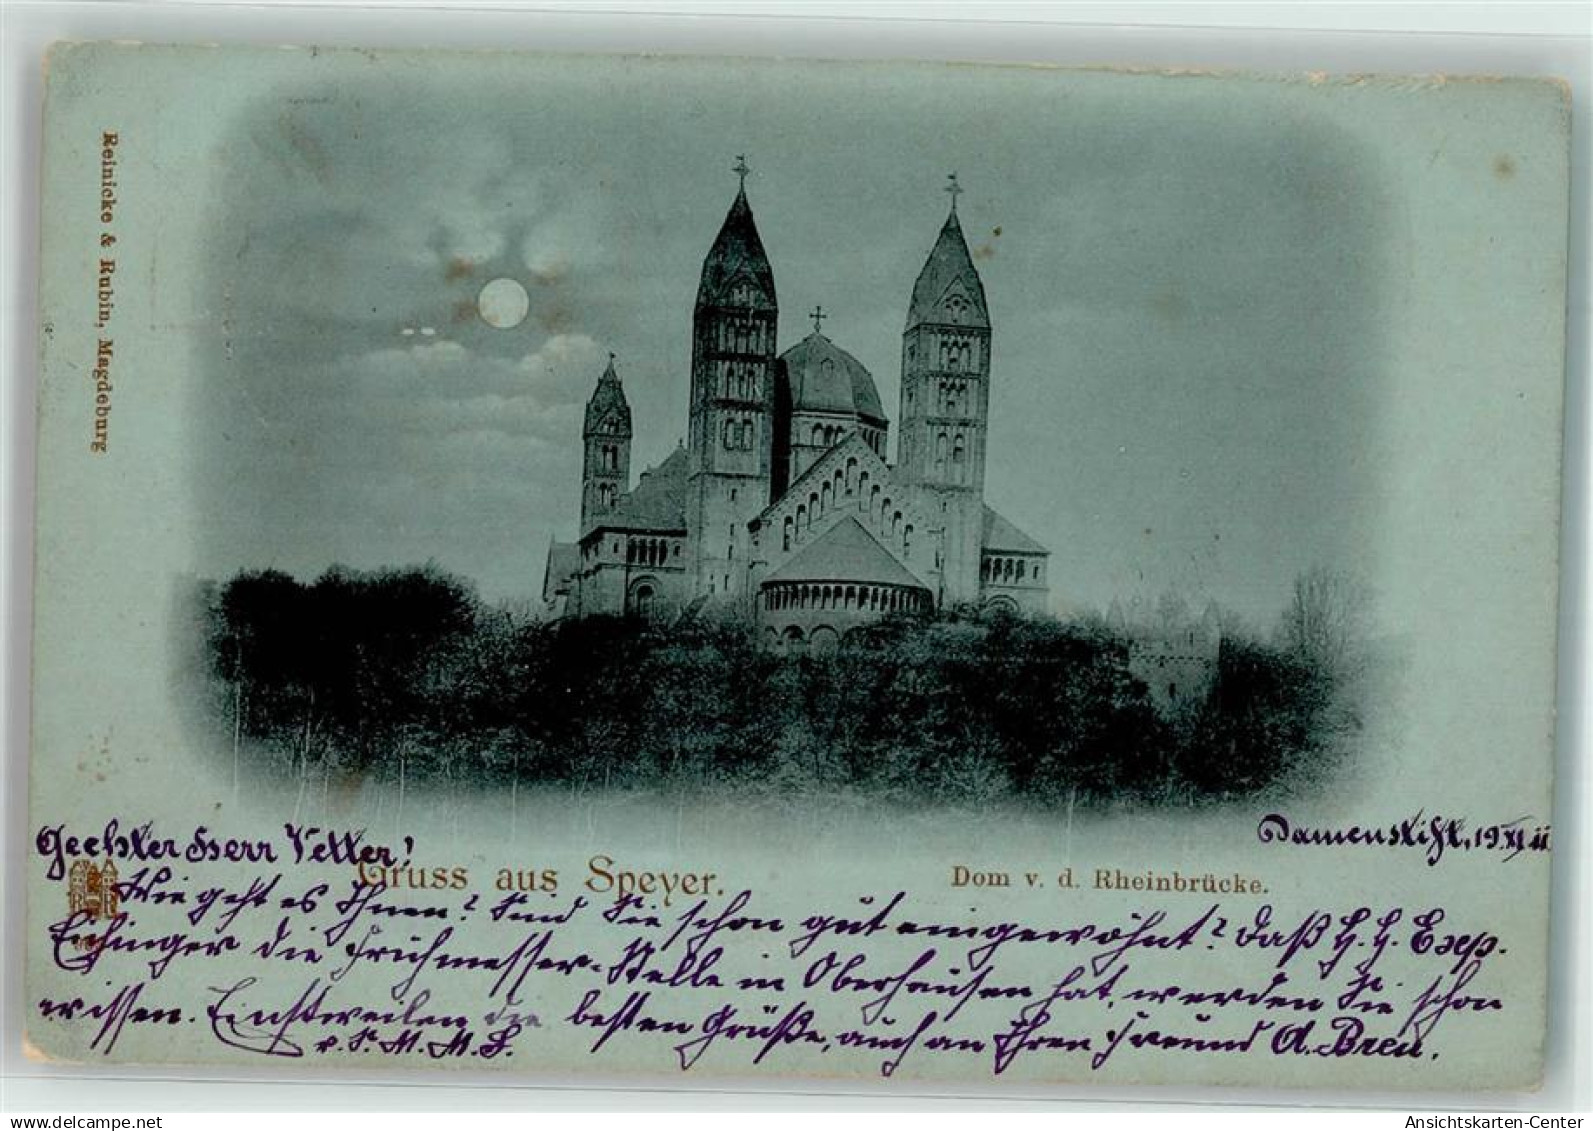 Reinicke & Rubin, Magdeburg
Damenstift, 19. XI
Geehrter Herr Vetter!
Gruss aus Speyer.
Dom v. d. Rheinbrücke.
R R
Wie geht es Ihnen? Sind Sie schon gut eingewöhnt? Daß H. H. Exp.
die Frühmesser-Stelle in Oberhausen hat, werden Sie schon
wissen. Einstweilen die besten Grüße, auch an Ihren Freund A. Breu.
v. S. M. M. S.
Ansichtskarten-Center